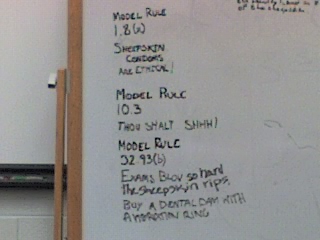 MODEL RULE
1.8(a)
SHEEPSKIN
CONDOMS
ARE ETHICAL!
MODEL RULE
10.3
THOU SHALT SHHH!
MODEL RULE
32.93(b)
EXAMS BLOW so hard
the sheepskin rips.
BUY A DENTAL DAM WITH
A VIBRATION RING